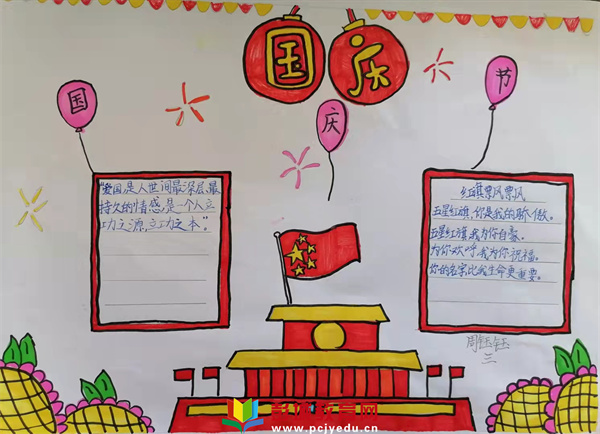 国庆
国
庆
节
"爱国,是人世间最深层、最
持久的情感,是一个人立
功之源,立功之本"。
红旗票风票风
五星红旗,你是我的骄傲。
五星红旗,我为你自豪。
为你欢呼,我为你祝福。
你的名字,比我生命更重要。
三
www.pcjyedu.cn